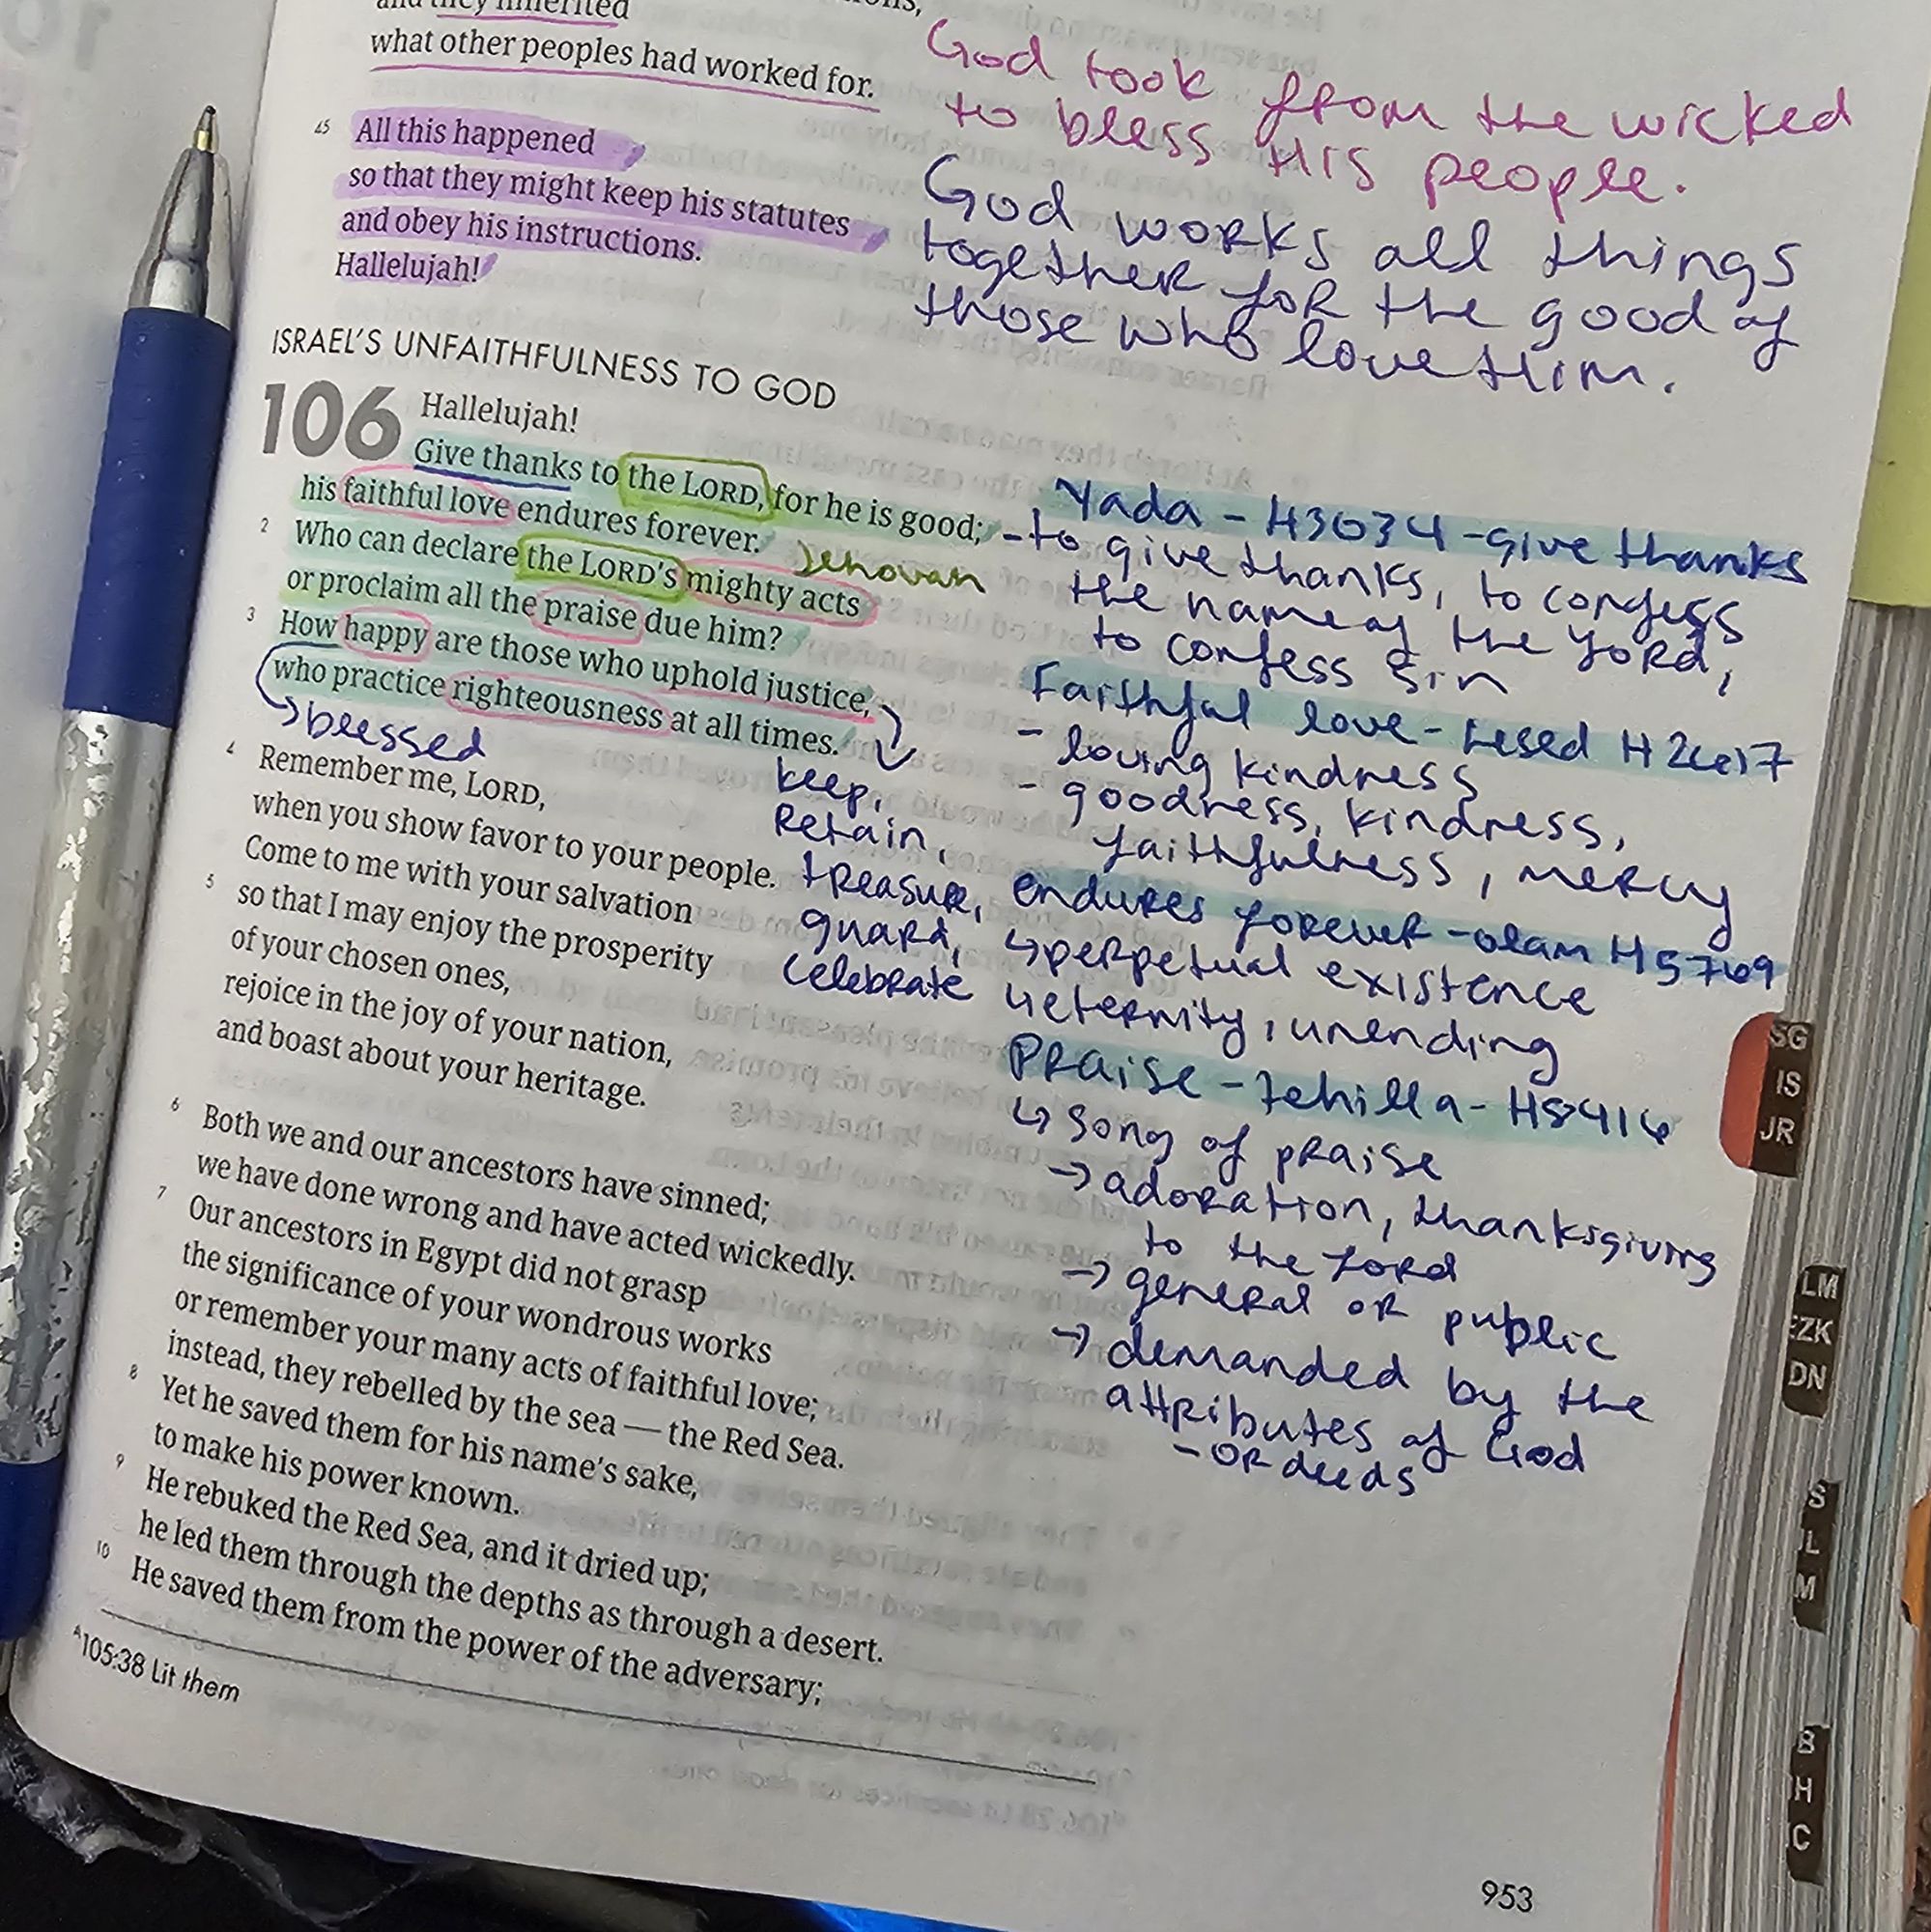 and they inherited
what other peoples had worked for.
45 All this happened
so that they might keep his statutes
and obey his instructions.
Hallelujah!
God took from the wicked
to bless His people.
God works all things
together for the good of
those who love Him.
ISRAEL'S UNFAITHFULNESS TO GOD
106 Hallelujah!
Give thanks to the LORD, for he is good;
his faithful love endures forever.
2 Who can declare the LORD's mighty acts
or proclaim all the praise due him?
3 How happy are those who uphold justice,
who practice righteousness at all times.
Jehovah
blessed
keep,
Retain,
treasure,
guard,
celebrate
4 Remember me, LORD,
when you show favor to your people.
Come to me with your salvation
5 so that I may enjoy the prosperity
of your chosen ones,
rejoice in the joy of your nation,
and boast about your heritage.
6 Both we and our ancestors have sinned;
we have done wrong and have acted wickedly.
7 Our ancestors in Egypt did not grasp
the significance of your wondrous works
or remember your many acts of faithful love;
instead, they rebelled by the sea — the Red Sea.
8 Yet he saved them for his name's sake,
to make his power known.
9 He rebuked the Red Sea, and it dried up;
he led them through the depths as through a desert.
10 He saved them from the power of the adversary;
A 105:38 Lit them
Yada - H3034 - give thanks
- to give thanks, to confess
the name of the Lord,
to confess sin
Faithful love - Hesed H2617
- loving kindness
- goodness, kindness,
faithfulness, mercy
endures forever - olam H5769
↳ perpetual existence
↳ eternity, unending
PRaise - tehilla - H8416
↳ song of praise
→ adoration, thanksgiving
to the Lord
→ general or public
→ demanded by the
attributes of God
- OR deeds
SG
IS
JR
LM
EZK
DN
S
L
M
B
H
953